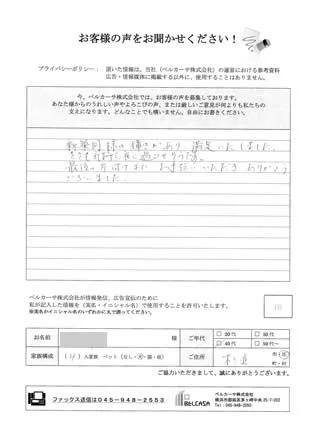 お客様の声をお聞かせください！
プライバシーポリシー： 頂いた情報は、当社（ベルカーサ株式会社）の運営における参考資料
広告・情報媒体に掲載する以外に、使用することはありません。
今、ベルカーサ株式会社では、お客様の声を募集しております。
あなた様からのうれしい声やよろこびの声、または厳しいご意見が何よりも私たちの
支えになります。どんなことでも構いません、自由にお書きください。
新築同様の輝きがあり、満足いたしました。
気持ち良く過ごせそうです。
最後の片付けまで お手伝いいただき ありがとう
ございました。
ベルカーサ株式会社が情報発信、広告宣伝のために
私が記入した情報を（実名・イニシャル名）で使用することを許可いたします。
※実名かイニシャル名のいずれかに丸で囲ってください。
印
お名前 様 ご年代 □ 20代 □ 50代
40代 □ 50代〜
家族構成 （4）人家族 ペット（なし・犬・猫・他） ご住所 市・区
町・村
ご協力いただきまして、誠にありがとうございます。
ファックス送信は045-948-2553
BELCASA
ベルカーサ株式会社
横浜市都筑区茅ヶ崎中央25-7-202
Tel：045-948-2550